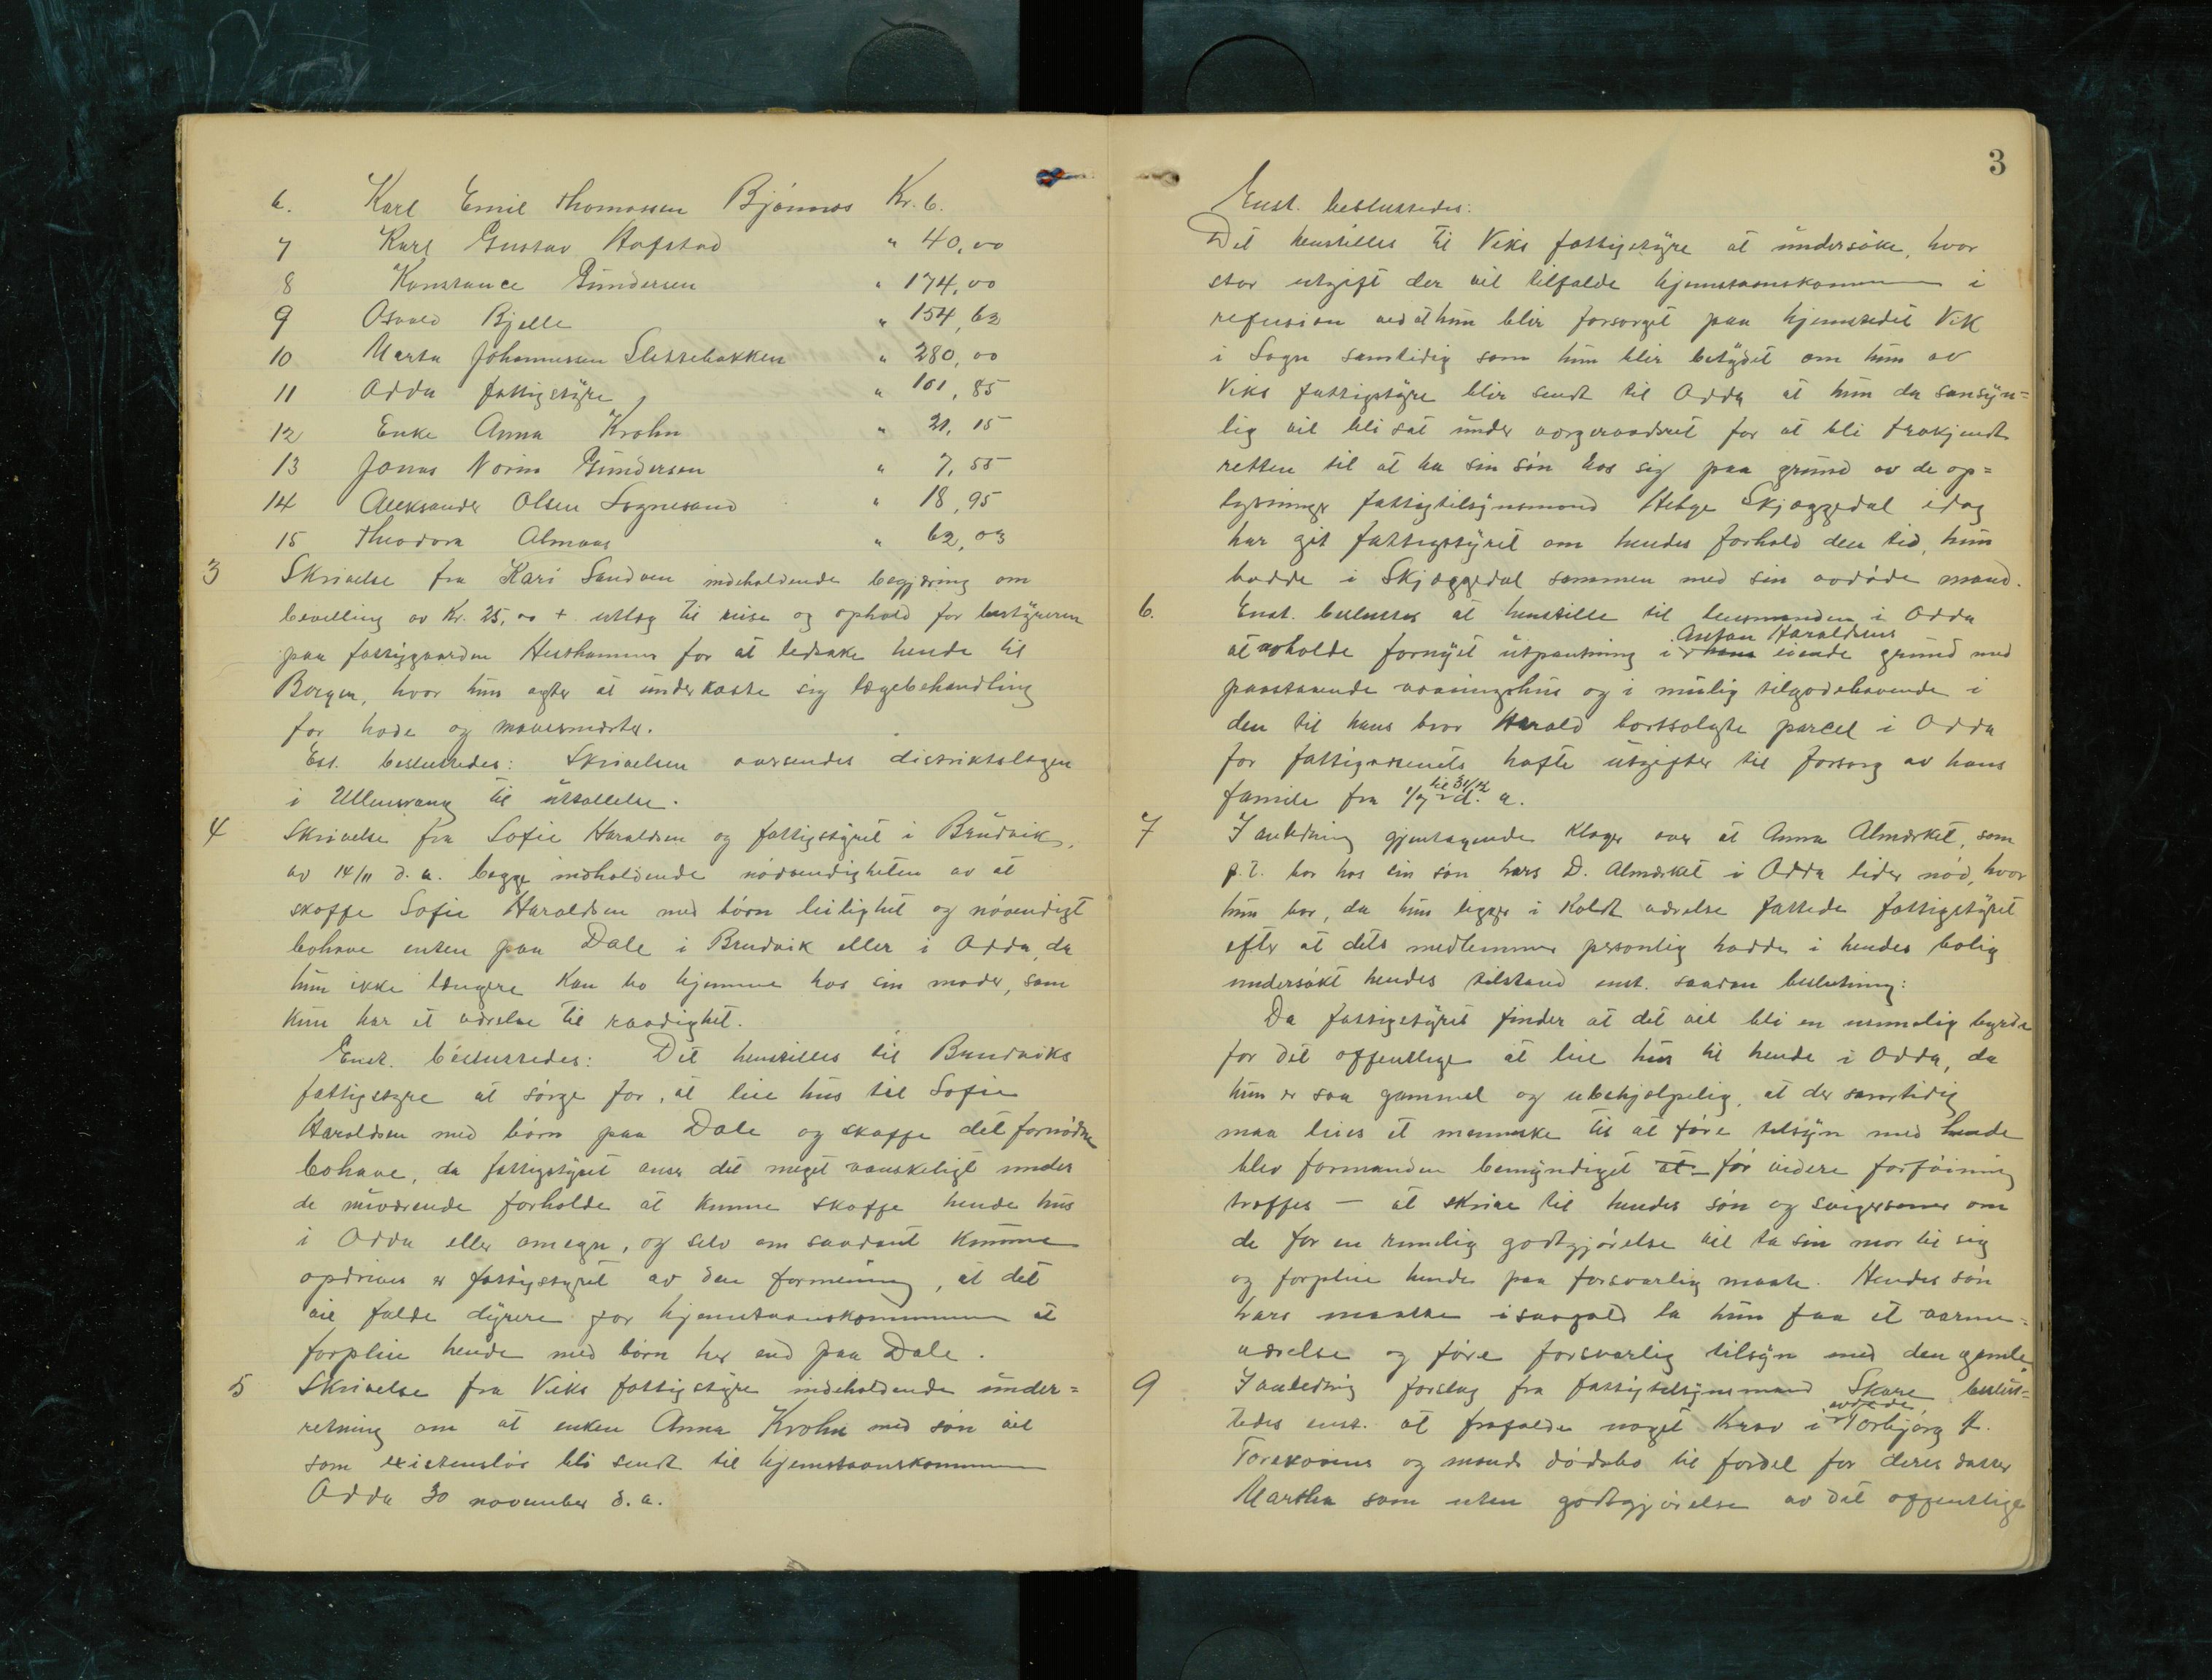 6. Karl Emil Thomassen Bjönnes Kr. 6.
7 Karl Gustav Hofstad " 40,00
8 Konstance Gundersen " 174,00
9 Osvald Bjelle " 154,62
10 Marta Johannessen Slettebakken " 280,00
11 Odda fattigstyre " 101,85
12 Enke Anna Krohn " 21,15
13 Jonas Gundersen " 7,55
14 Aleksander Olsen Sognesand " 18,95
15 Theodora Almaas " 62,03
3 Skrivelse fra Kari Sandven indeholdende begjæring om
bevilling av Kr. 25,00 + utlæg til reise og ophold for bestyreren
paa fattiggaarden Hesthammer for at ledsake hende til
Bergen, hvor hun agter at underkaste sig lægebehandling
for hode og mavesmerter.
Est. besluttedes: Skrivelsen oversendes distriktslægen
i Ullensvang til uttallelse.
4 Skrivelse fra Sofie Haraldsen og fattigstyret i Brudvik,
av 14/11 d. a. begge indholdende nödvendigheten av at
skaffe Sofie Haraldsen med börn leilighet og növendigt
bohave enten paa Dale i Brudvik eller i Odda, da
hun ikke længere kan bo hjemme hos sin moder, som
kun har et værelse til raadighet.
Enst. besluttedes: Det henstilles til Brudviks
fattigstyre at sörge for, at leie hus til Sofie
Haraldsen med börn paa Dale og skaffe det fornödne
bohave, da fattigstyret anser det meget vanskeligt under
de nuværende forholde at kunne skaffe hende hus
i Odda eller omegn, og selv om saadant kunne
opdrives er fattigstyret av den formening, at det
vil falde dyrere for hjemstavnskommunen at
forpleie hende med börn her end paa Dale.
5 Skrivelse fra Viks fattigstyre indeholdende under=
retning om at enken Anna Krohn med sön vil
som existenslös bli sendt til hjemstavnskommunen
Odda 30 november d. a.
3
Enst. besluttedes:
Det henstilles til Viks fattigstyre at undersöke, hvor
stor utgift der vil tilfalde hjemstavnskommunen i
refusion ved at hun blir forsorget paa hjemstedet Vik
i Sogn samtidig som hun blir betydet om hun av
Viks fattigstyre blir sendt til Odda at hun da sansyn=
lig vil bli sat under vergeraadset for at bli frakjendt
retten til at ha sin sön hos sig paa grund av de op=
lysninger fattigtilsynsmand Helge Skjæggedal idag
har git fattigstyret om hendes forhold den tid, hun
bodde i Skjæggedal sammen med sin avdöde mand.
6. Enst. besluttes at henstille til lensmanden i Odda
Anton Haraldsens
at avholde fornyet utpantning i hans eiende grund med
paastaaende vaaningshus og i mulig tilgodehavende i
den til hans bror Harald bortsolgte parcel i Odda
for fattigvæsenets hafte utgifter til forsorg av hans
til 31/12
familie fra 1/7 d. a.
7 I anledning gjentagende klager over at Anna Almerket, som
p. t. bor hos sin sön Lars D. Almerket i Odda lider nöd, hvor
hun bor, da hun ligger i koldt værelse fattede fattigstyret
efter at dets medlemmer personlig hadde i hendes bolig
undersökt hendes tilstand enst. saadan beslutning:
Da fattigstyret finder at det vil bli en urimelig byrde
for det offentlige at leie hus til hende i Odda, da
hun er saa gammel og ubehjælpelig, at der samtidig
maa leies et menneske til at före tilsyn med hende
blev formanden bemyndiget at för videre forföining
træffes — at skrive til hendes sön og svigersönner om
de for en rimelig godtgjörelse vil ta sin mor til sig
og forpleie hende paa forsvarlig maate. Hendes sön
Lars maatte isaafald la hun faa et varme=
værelse og före forsvarlig tilsyn med den gamle.
9 I anledning forslag fra fattigtilsynsmand Skare beslut=
avdöde
tedes enst. at frafalde noget krav i Torbjörg A.
og mands dödsbo til fordel for deres datter
Martha som uten godtgjörelse av det offentlige